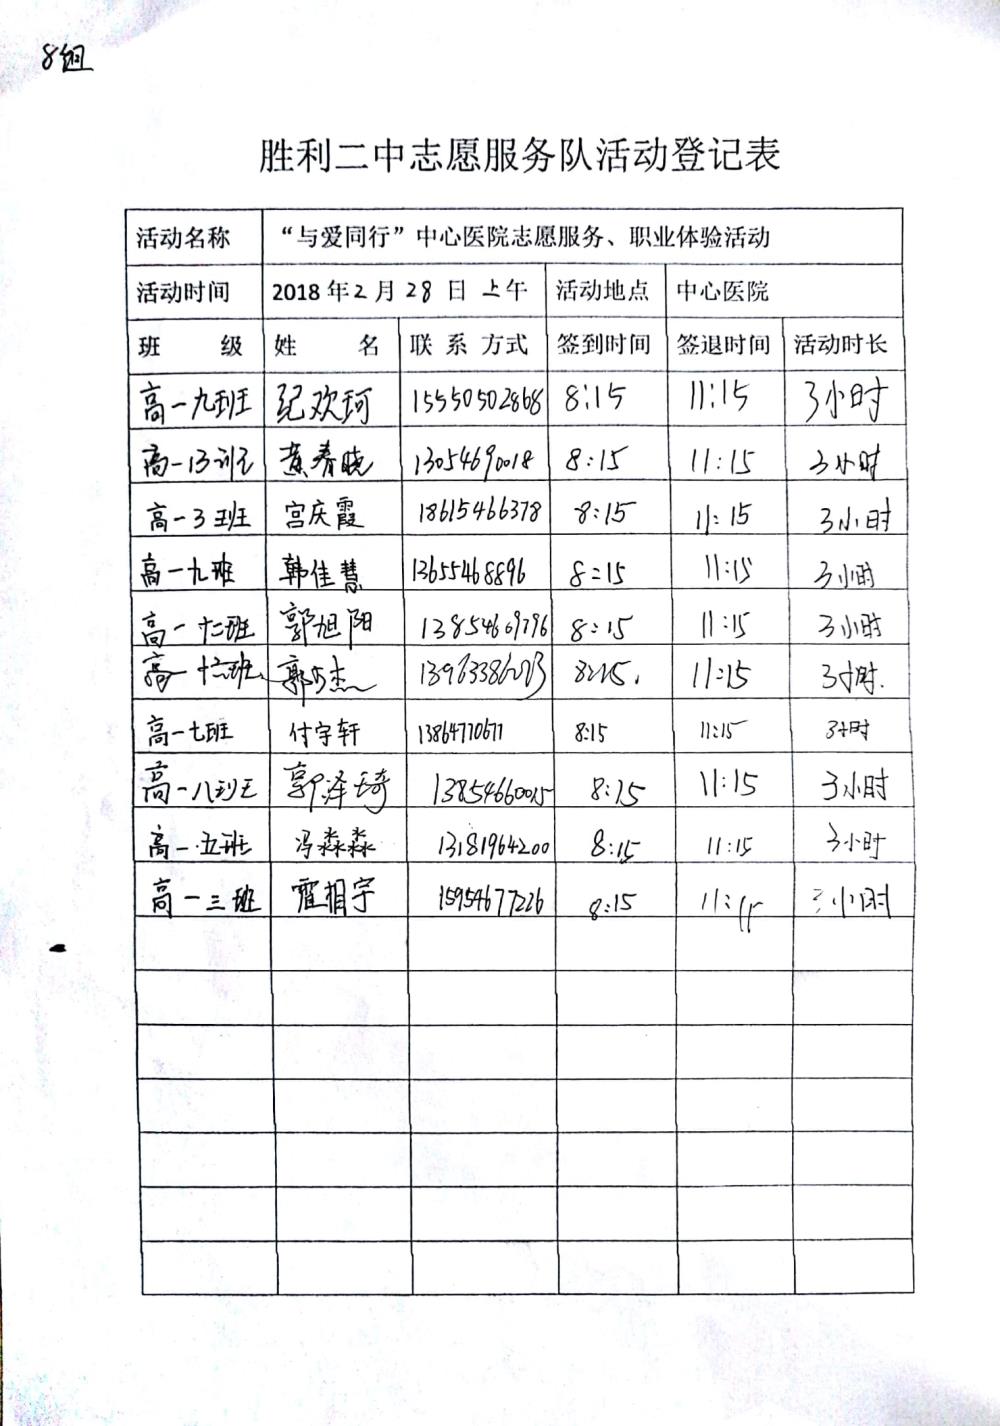 8组
胜利二中志愿服务队活动登记表
活动名称 “与爱同行”中心医院志愿服务、职业体验活动
活动时间 2018年2月28日 上午 活动地点 中心医院
班 级 姓 名 联系方式 签到时间 签退时间 活动时长
高一九班 纪欢珂 15550502868 8:15 11:15 3小时
高一13班 黄春晓 13054690018 8:15 11:15 3小时
高一3班 宫庆霞 18615466378 8:15 11:15 3小时
高一九班 韩佳慧 13655468896 8:15 11:15 3小时
高一十二班 郭旭阳 13854609796 8:15 11:15 3小时
高一十二班 8:15. 11:15 3小时.
高一七班 付宇轩 13864770671 8:15 11:15 3小时
高一八班 郭泽琦 13854660015 8:15 11:15 3小时
高一.五班 冯淼淼 13181964200 8:15 11:15 3小时
高一三班 霍相宇 15954677226 8:15 11:15 3小时